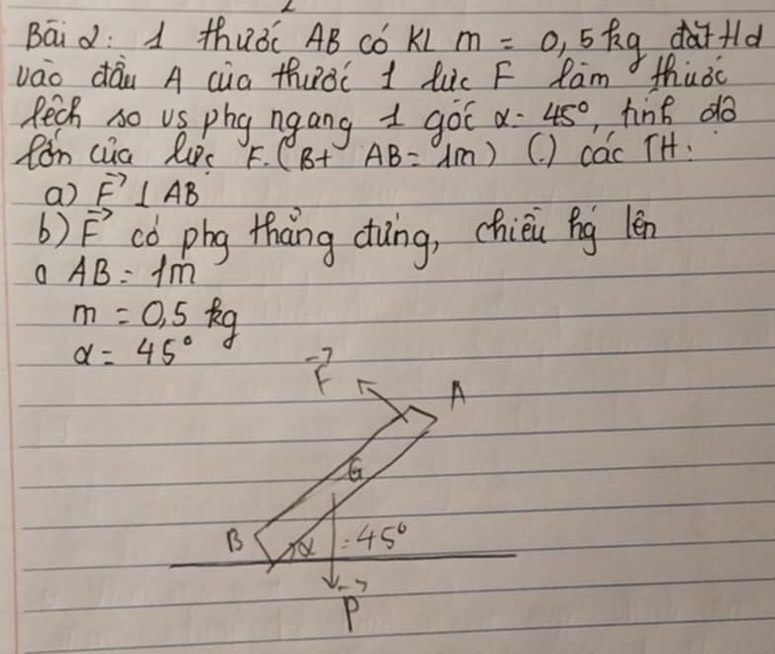 Bài 2: 1 thước AB có KL m = 0,5 kg đặt td
vào đầu A của thước 1 lực F làm thước
lệch so vs phg ngang 1 góc α = 45°, tính độ
lớn của lực F. (Bt AB = 1m) (.) các TH:
a) F⃗ ⊥ AB
b) F⃗ có phg thẳng đứng, chiều hg lên
a AB = 1m
m = 0,5 kg
α = 45°
F⃗
A
G
B
α = 45°
P⃗